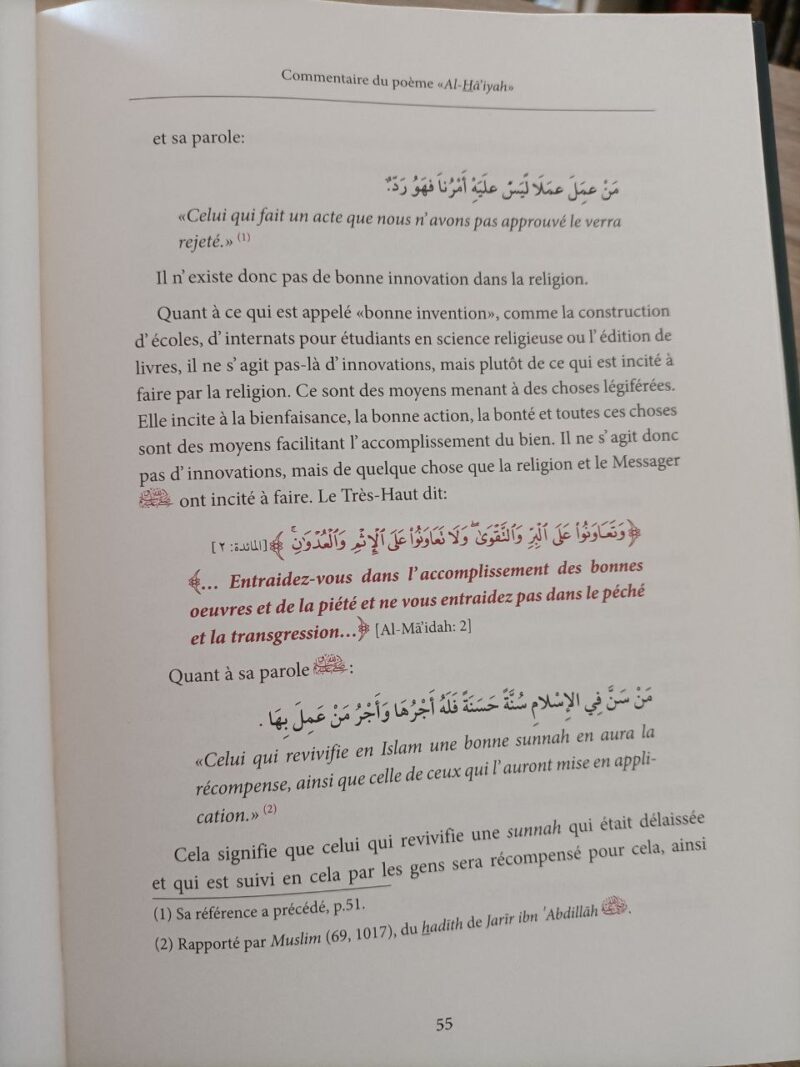 Commentaire du poème «Al-Hâ'iyah»
et sa parole:
مَنْ عمِلَ عملَا لَّيَسْ علَيَهْ أَمْرُناَ فهَوُ رَدّ:ٌ
«Celui qui fait un acte que nous n'avons pas approuvé le verra
rejeté.» (1)
Il n'existe donc pas de bonne innovation dans la religion.
Quant à ce qui est appelé «bonne invention», comme la construction
d'écoles, d'internats pour étudiants en science religieuse ou l'édition de
livres, il ne s'agit pas-là d'innovations, mais plutôt de ce qui est incité à
faire par la religion. Ce sont des moyens menant à des choses légiférées.
Elle incite à la bienfaisance, la bonne action, la bonté et toutes ces choses
sont des moyens facilitant l'accomplissement du bien. Il ne s'agit donc
pas d'innovations, mais de quelque chose que la religion et le Messager
ﷺ ont incité à faire. Le Très-Haut dit:
﴿وَتَعَاوَنُواْ عَلَى ٱلْبِرِّ وَٱلتَّقْوَىٰ ۖ وَلَا تَعَاوَنُواْ عَلَى ٱلْإِثْمِ وَٱلْعُدْوَٰنِ ۚ﴾ [المائدة: ٢]
﴾... Entraidez-vous dans l'accomplissement des bonnes
oeuvres et de la piété et ne vous entraidez pas dans le péché
et la transgression...﴿ [Al-Mā'idah: 2]
Quant à sa parole ﷺ:
مَنْ سَنَّ فِي الإِسْلامِ سُنَّةً حَسَنَةً فَلَهُ أَجْرُهَا وَأَجْرُ مَنْ عَمِلَ بِهَا .
«Celui qui revivifie en Islam une bonne sunnah en aura la
récompense, ainsi que celle de ceux qui l'auront mise en appli-
cation.» (2)
Cela signifie que celui qui revivifie une sunnah qui était délaissée
et qui est suivi en cela par les gens sera récompensé pour cela, ainsi
(1) Sa référence a précédé, p.51.
(2) Rapporté par Muslim (69, 1017), du hadīth de Jarīr ibn 'Abdillāh .
55